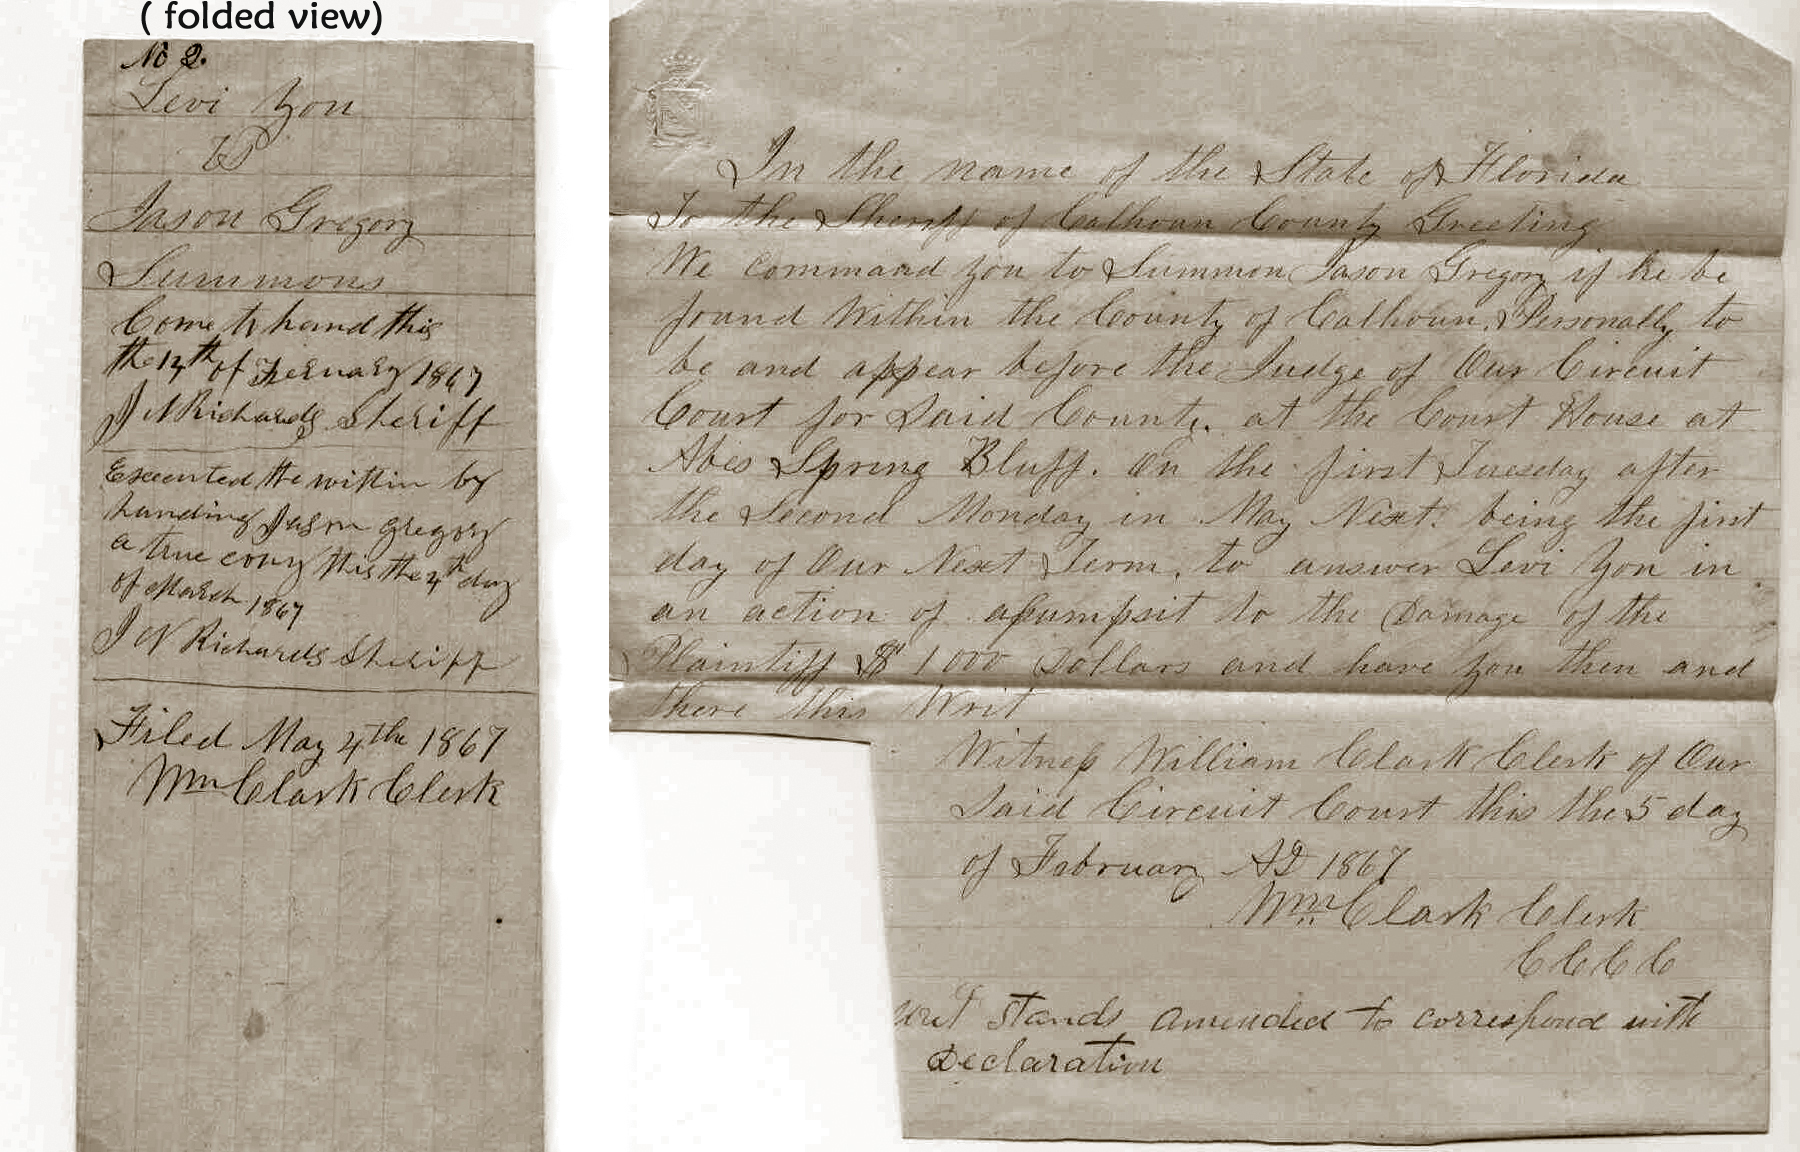 ( folded view)
No 2.
Levi Yon
vs
Jason Gregory
Summons
Come to hand this
the 14th of Feruary 1867
J N Richards Sheriff
Executed the within by
handing Jason gregory
a true copy this the 4th day
of March 1867
J N Richards Sheriff
Filed May 4th 1867
Wm Clark Clerk
In the name of the State of Florida
To the Sheriff of Calhoun County Greeting
We command you to Summon Jason Gregory if he be
found Within the County of Calhoun. Personally to
be and appear before the Judge of Our Circuit
Court for Said County. at the Court House at
Abes Spring Bluff. On the first Tuesday after
the Second Monday in May Next. being the first
day of Our Next Term. to answer Levi Yon in
an action of assumpsit to the Damage of the
Plaintiff $ 1000 Dollars and have you then and
there this Writ
Witness William Clark Clerk of Our
Said Circuit Court this the 5 day
of February AD 1867
Wm Clark Clerk
C C C C
writ stands amended to correspond with
Declaration